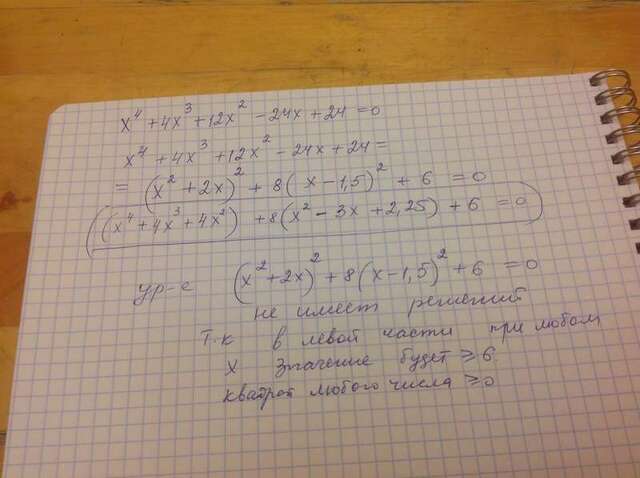 x⁴ + 4x³ + 12x² - 24x + 24 = 0
x⁴ + 4x³ + 12x² - 24x + 24 =
= (x² + 2x)² + 8(x - 1,5)² + 6 = 0
((x⁴ + 4x³ + 4x²) + 8(x² - 3x + 2,25) + 6 = 0)
ур-е (x² + 2x)² + 8(x - 1,5)² + 6 = 0
не имеет решений
т.к в левой части при любом
x значение будет ≥ 6
квадрат любого числа ≥ 0